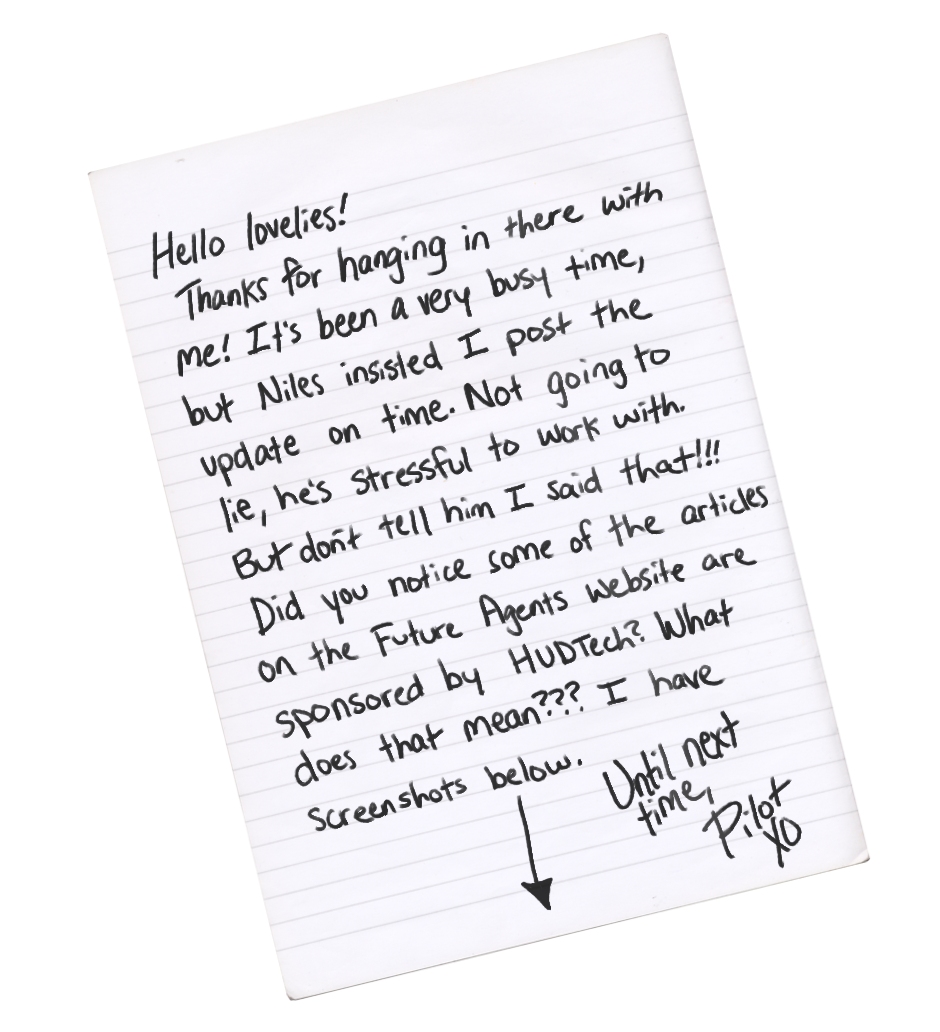 Hello lovelies!
Thanks for hanging in there with
me! It's been a very busy time,
but Niles insisted I post the
update on time. Not going to
lie, he's stressful to work with.
But don't tell him I said that!!!
Did you notice some of the articles
on the Future Agents website are
sponsored by HUDTech? What
does that mean??? I have
screenshots below.
Until next
time,
Pilot
XO